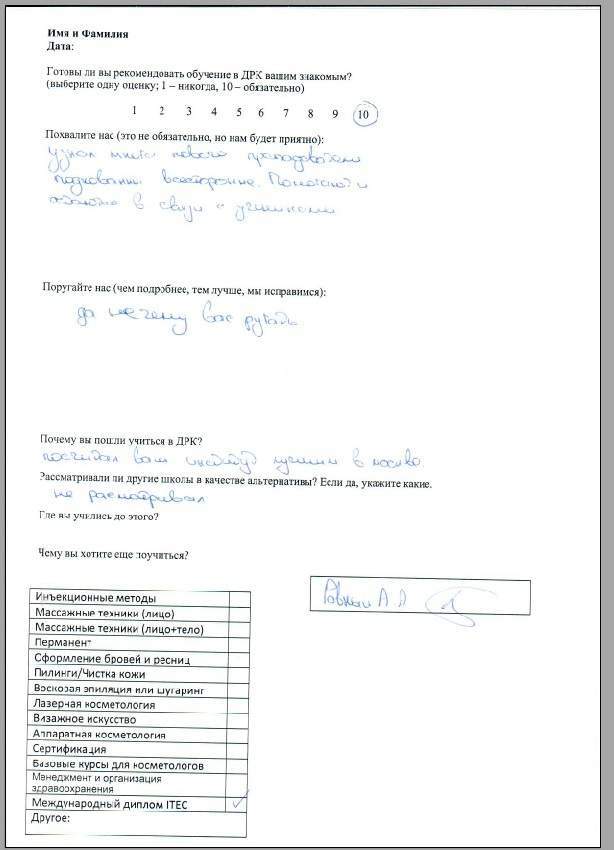 Имя и Фамилия
Дата:
Готовы ли вы рекомендовать обучение в ДРК вашим знакомым?
(выберите одну оценку; 1 – никогда, 10 – обязательно)
1 2 3 4 5 6 7 8 9 10
Похвалите нас (это не обязательно, но нам будет приятно):
узнал много нового преподаватели
подкованны всесторонне.
в связи с учениками
Поругайте нас (чем подробнее, тем лучше, мы исправимся):
да нечему вас ругать
Почему вы пошли учиться в ДРК?
посчитал ваш институт лучшим в москве
Рассматривали ли другие школы в качестве альтернативы? Если да, укажите какие.
не расматривал
Где вы учились до этого?
Чему вы хотите еще поучиться?
Инъекционные методы
Массажные техники (лицо)
Массажные техники (лицо+тело)
Перманент
Оформление бровей и ресниц
Пилинги/Чистка кожи
Восковая эпиляция или шугаринг
Лазерная косметология
Визажное искусство
Аппаратная косметология
Сертификация
Базовые курсы для косметологов
Менеджмент и организация
здравоохранения
Международный диплом ITEC
Другое: